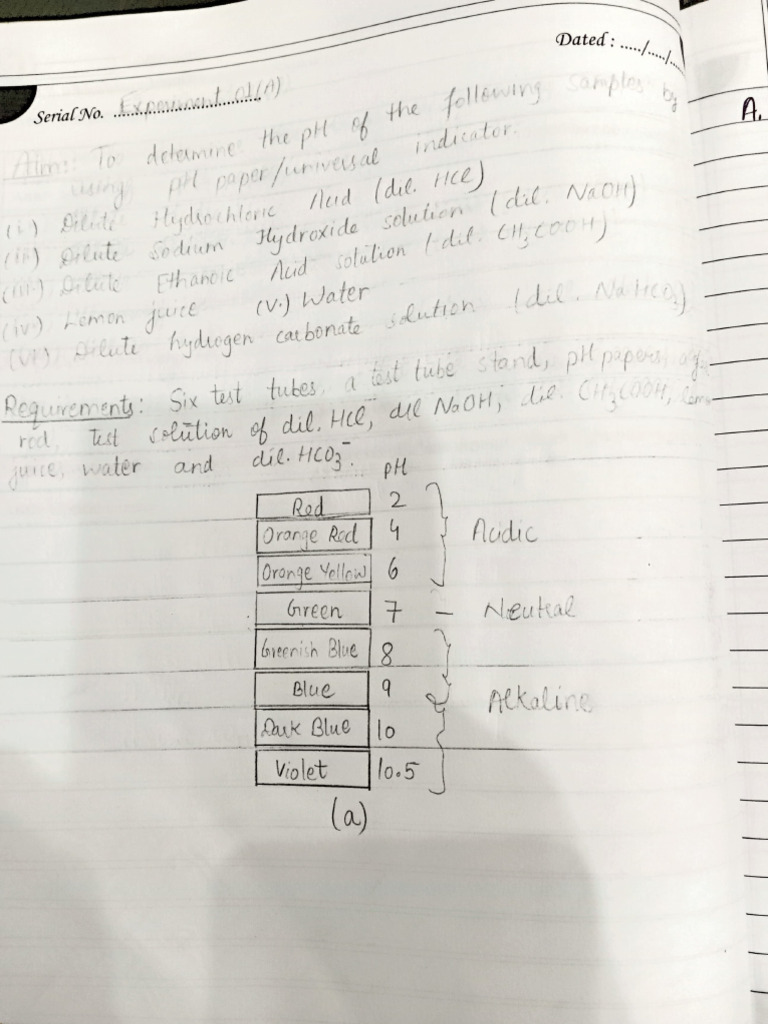 Dated : ...../...../.....
Serial No. Experiment 01(A)
Aim: To determine the pH of the following samples by
using pH paper/universal indicator.
(i) Dilute Hydrochloric Acid (dil. HCl)
(ii) Dilute Sodium Hydroxide solution (dil. NaOH)
(iii) Dilute Ethanoic Acid solution (dil. CH3COOH)
(iv) Lemon juice (v.) Water
(vi) Dilute hydrogen carbonate solution (dil. NaHCO3)
Requirements: Six test tubes, a test tube stand, pH papers, a
rod, test solution of dil. HCl, dil NaOH, dil. CH3COOH,
juice, water and dil. HCO3⁻.
pH
Red 2
Orange Red 4 Acidic
Orange Yellow 6
Green 7 – Neutral
Greenish Blue 8
Blue 9 Alkaline
Dark Blue 10
Violet 10.5
(a)
A.